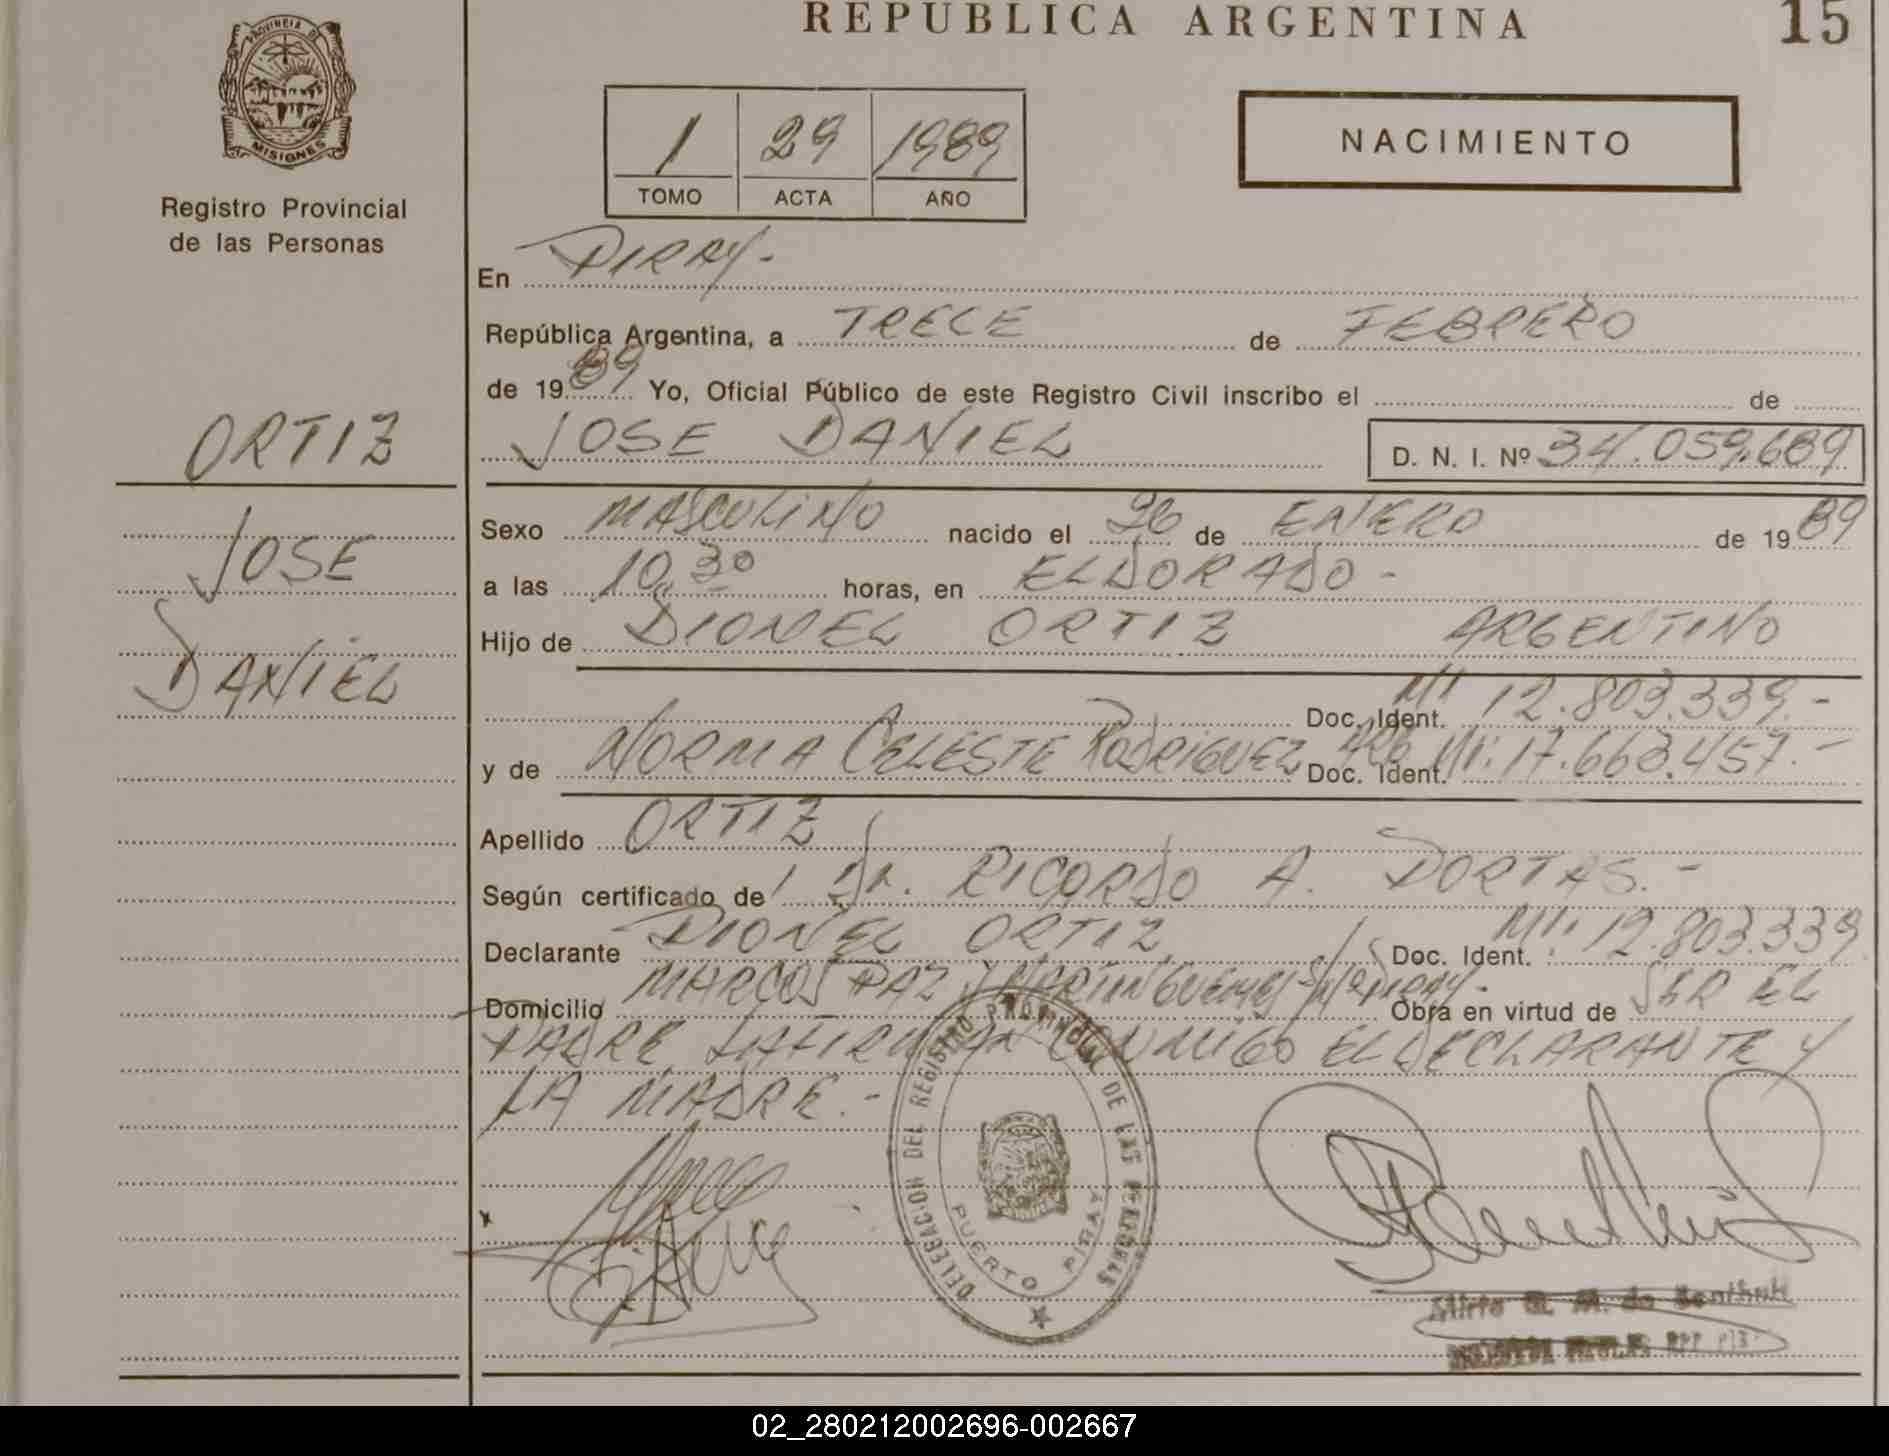 REPUBLICA ARGENTINA
15
PROVINCIA DE
MISIONES
Registro Provincial
de las Personas
1 29 1989
TOMO ACTA AÑO
NACIMIENTO
En PIRAY.-
República Argentina, a TRECE de FEBRERO
de 1989 Yo, Oficial Público de este Registro Civil inscribo el de
ORTIZ
JOSE DANIEL D. N. I. Nº 34.059.689
JOSE
DANIEL
Sexo MASCULINO nacido el 26 de ENERO de 1989
a las 10,30 horas, en ELDORADO -
Hijo de DIONEL ORTIZ ARGENTINO
Doc. Ident. MI 12.803.339.-
y de NORMA CELESTE RODRIGUEZ ARG Doc. Ident. MI: 17.663.457.-
Apellido ORTIZ
Según certificado de Dr. RICARDO A. PORTAS.-
Declarante DIONEL ORTIZ Doc. Ident. MI: 12.803.339
Domicilio MARCOS PAZ Y MARTIN GUEMES Obra en virtud de SER EL
PADRE CONMIGO EL DECLARANTE Y
LA MADRE.-
DELEGACION DEL REGISTRO PROVINCIAL DE LAS PERSONAS
PUERTO PIRAY
02_280212002696-002667